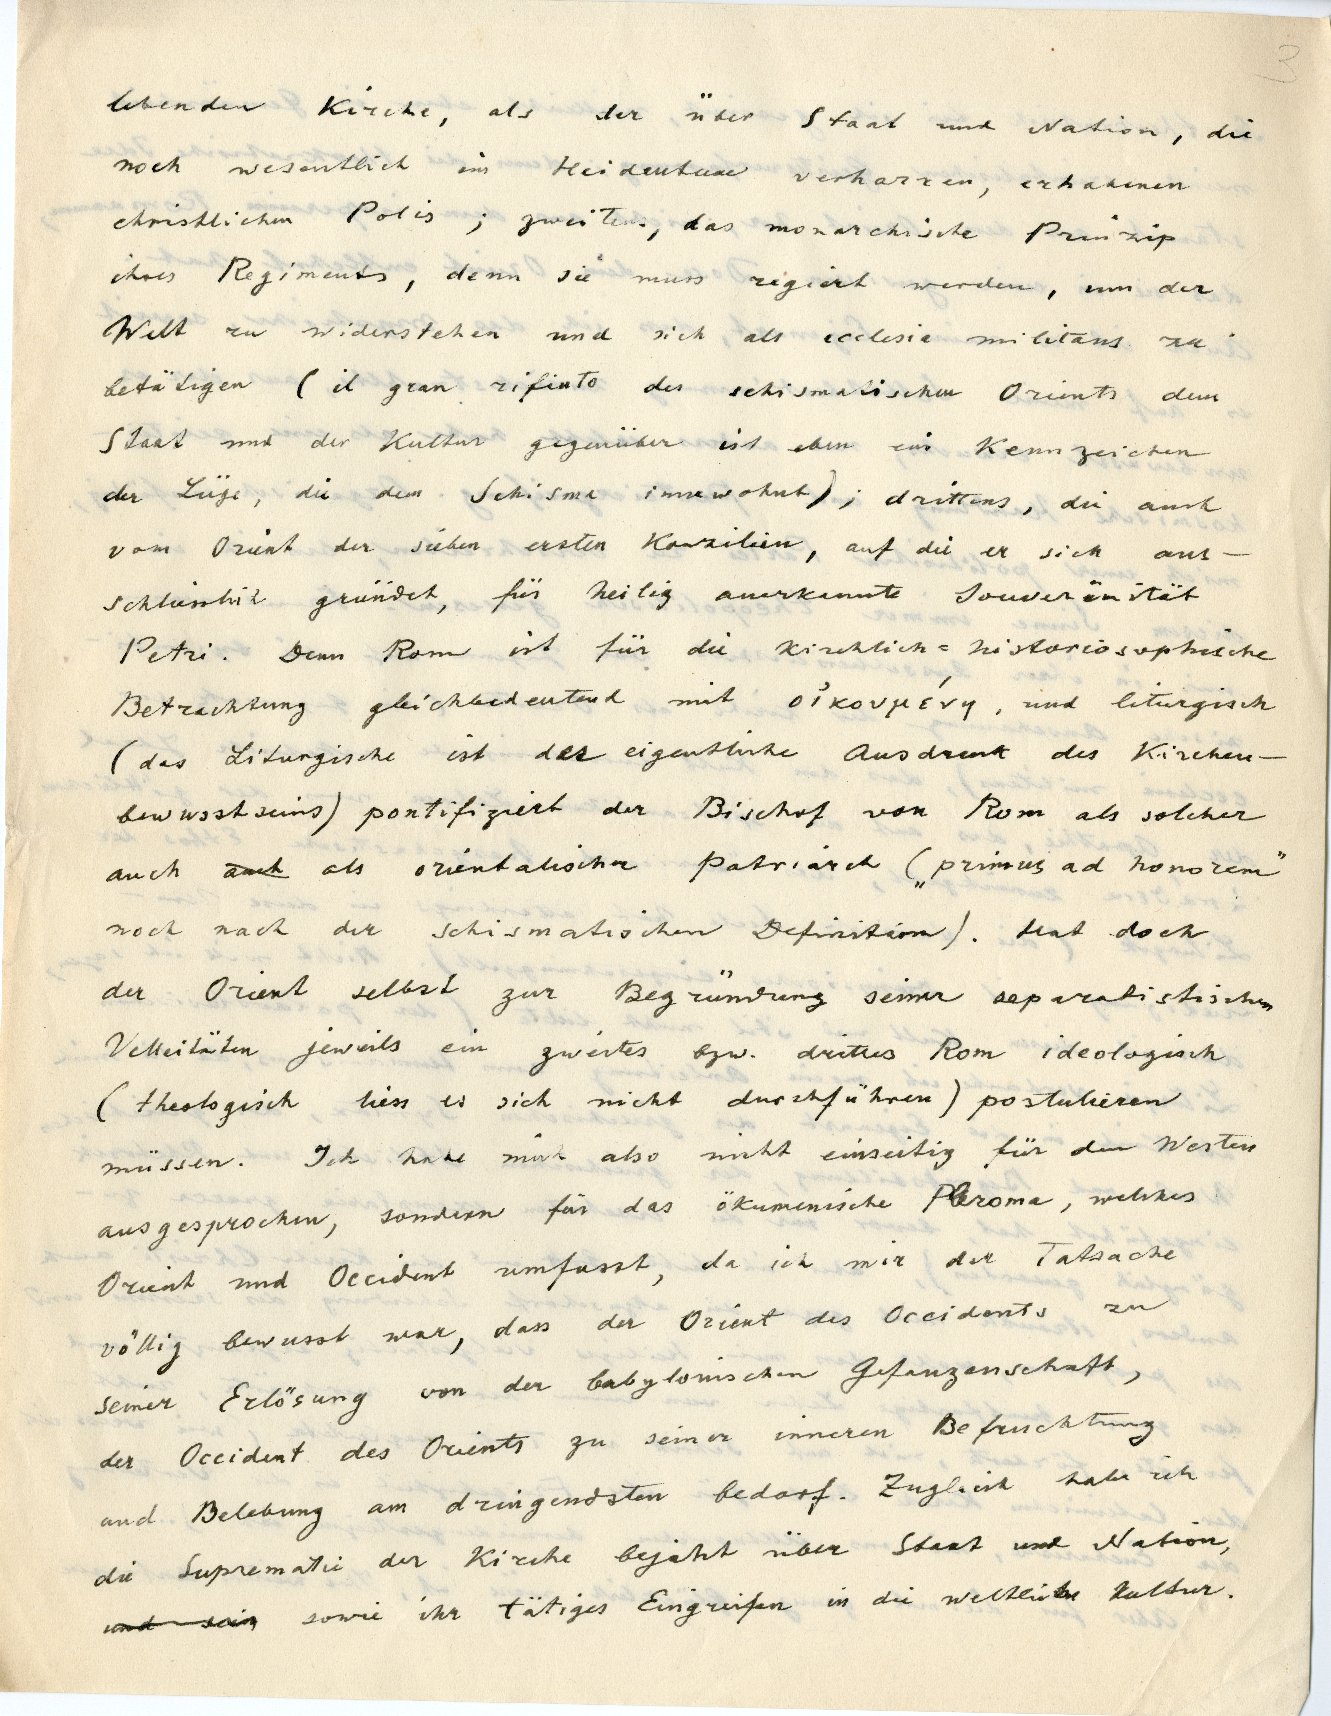 3
lebenden Kirche, als der über Staat und Nation, die
noch wesentlich im Heidentum verharren, erhabenen
christlichen Polis; zweitens, das monarchische Prinzip
ihres Regiments, denn sie muss regiert werden, um der
Welt zu widerstehen und sich als ecclesia militans zu
betätigen (il gran rifiuto des schismatischen Orients dem
Staat und der Kultur gegenüber ist eben ein Kennzeichen
der Lüge, die dem Schisma innewohnt); drittens, die auch
vom Orient der sieben ersten Konzilien, auf die er sich aus-
schliesslich gründet, für heilig anerkannte Souveränität
Petri. Denn Rom ist für die kirchlich=historiosophische
Betrachtung gleichbedeutend mit οἰκουμένη, und liturgisch
(das Liturgische ist der eigentliche Ausdruck des Kirchen-
bewusstseins) pontifiziert der Bischof von Rom als solcher
auch auch als orientalischer Patriarch („primus ad honorem"
noch nach der schismatischen Definition). Hat doch
der Orient selbst zur Begründung seiner separatistischen
Velleitäten jeweils ein zweites bzw. drittes Rom ideologisch
(theologisch liess es sich nicht durchführen) postulieren
müssen. Ich habe mich also nicht einseitig für den Westen
ausgesprochen, sondern für das ökumenische Pleroma, welches
Orient und Occident umfasst, da ich mir der Tatsache
völlig bewusst war, dass der Orient des Occidents zu
seiner Erlösung von der babylonischen Gefangenschaft,
der Occident des Orients zu seiner inneren Befruchtung
und Belebung am dringendsten bedarf. Zugleich habe ich
die Suprematie der Kirche bejaht über Staat und Nation,
und sein sowie ihr tätiges Eingreifen in die weltliche Kultur.